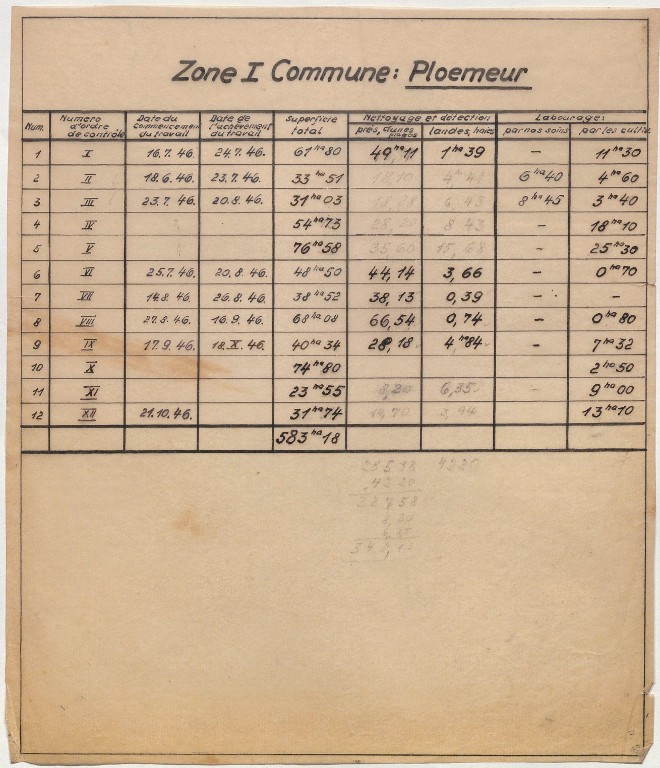 Zone I Commune: Ploemeur
Num. Numéro d'ordre de contrôle Date du commencement du travail Date de l'achèvement du travail Superficie total Nettoyage et détection Labourage:
prés, dunes plages landes, haies par nos soins par les cultiv.
1 I 16.7.46. 24.7.46. 61 ha 80 49 ha 11 1 ha 39 – 11 ha 30
2 II 18.6.46. 23.7.46. 33 ha 51 18,10 6 ha 40 4 ha 60
3 III 23.7.46. 20.8.46. 31 ha 03 6,43 8 ha 45 3 ha 40
4 IV 54 ha 73 8,43 – 18 ha 10
5 V 76 ha 58 35,60 15,68 – 25 ha 30
6 VI 25.7.46. 20.8.46. 48 ha 50 44,14 3,66 – 0 ha 70
7 VII 14.8.46. 26.8.46. 38 ha 52 38,13 0,39 – –
8 VIII 27.8.46. 16.9.46. 68 ha 08 66,54 0,74 – 0 ha 80
9 IX 17.9.46. 18.X.46. 40 ha 34 28,18 4 ha 84 – 7 ha 32
10 X 74 ha 80 2 ha 50
11 XI 23 ha 55 8,20 6,35 9 ha 00
12 XII 21.10.46. 31 ha 74 14,70 3,94 13 ha 10
583 ha 18
4220
42 20